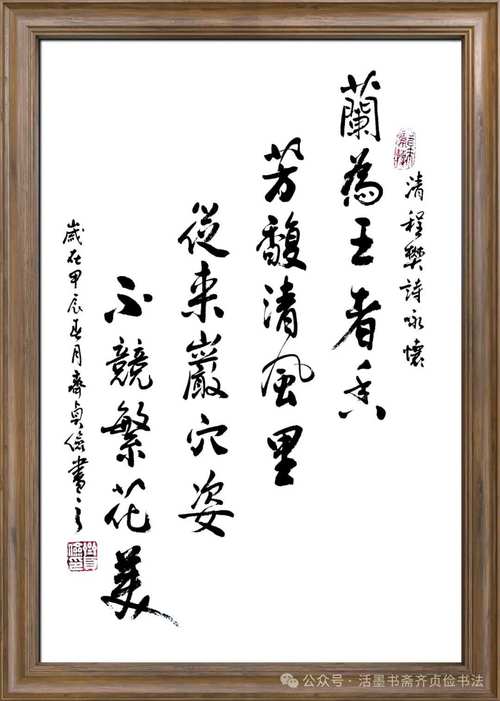 清程樊詩咏懷
蘭為王者香
芳馥清風里
從来巖穴姿
不競繁花美
歲在甲辰春月齊貞儉書之
公众号·活墨书斋齐贞俭书法